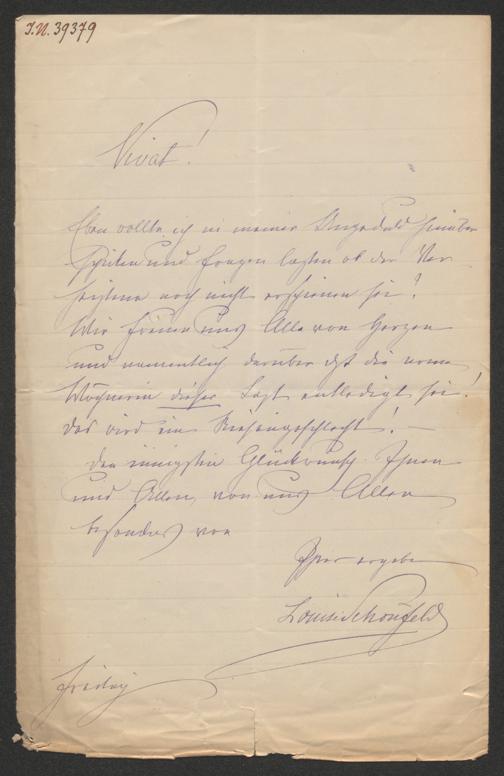 I.N. 39379
Vivat!
Eben wollte ich in meiner Ungeduld hinüber
schicken und fragen lassen ob der
noch nicht erschienen sei?
Wir freuen uns Alle von Herzen
und namentlich darüber daß die arme
Wöchnerin dieser Last entledigt sei!
das wird ein Riesengeschlecht! —
Den innigsten Glückwunsch Ihnen
und Allen, von uns Allen
besonders von
Ihrer ergebenen
Louise Schönfeld
Freitag